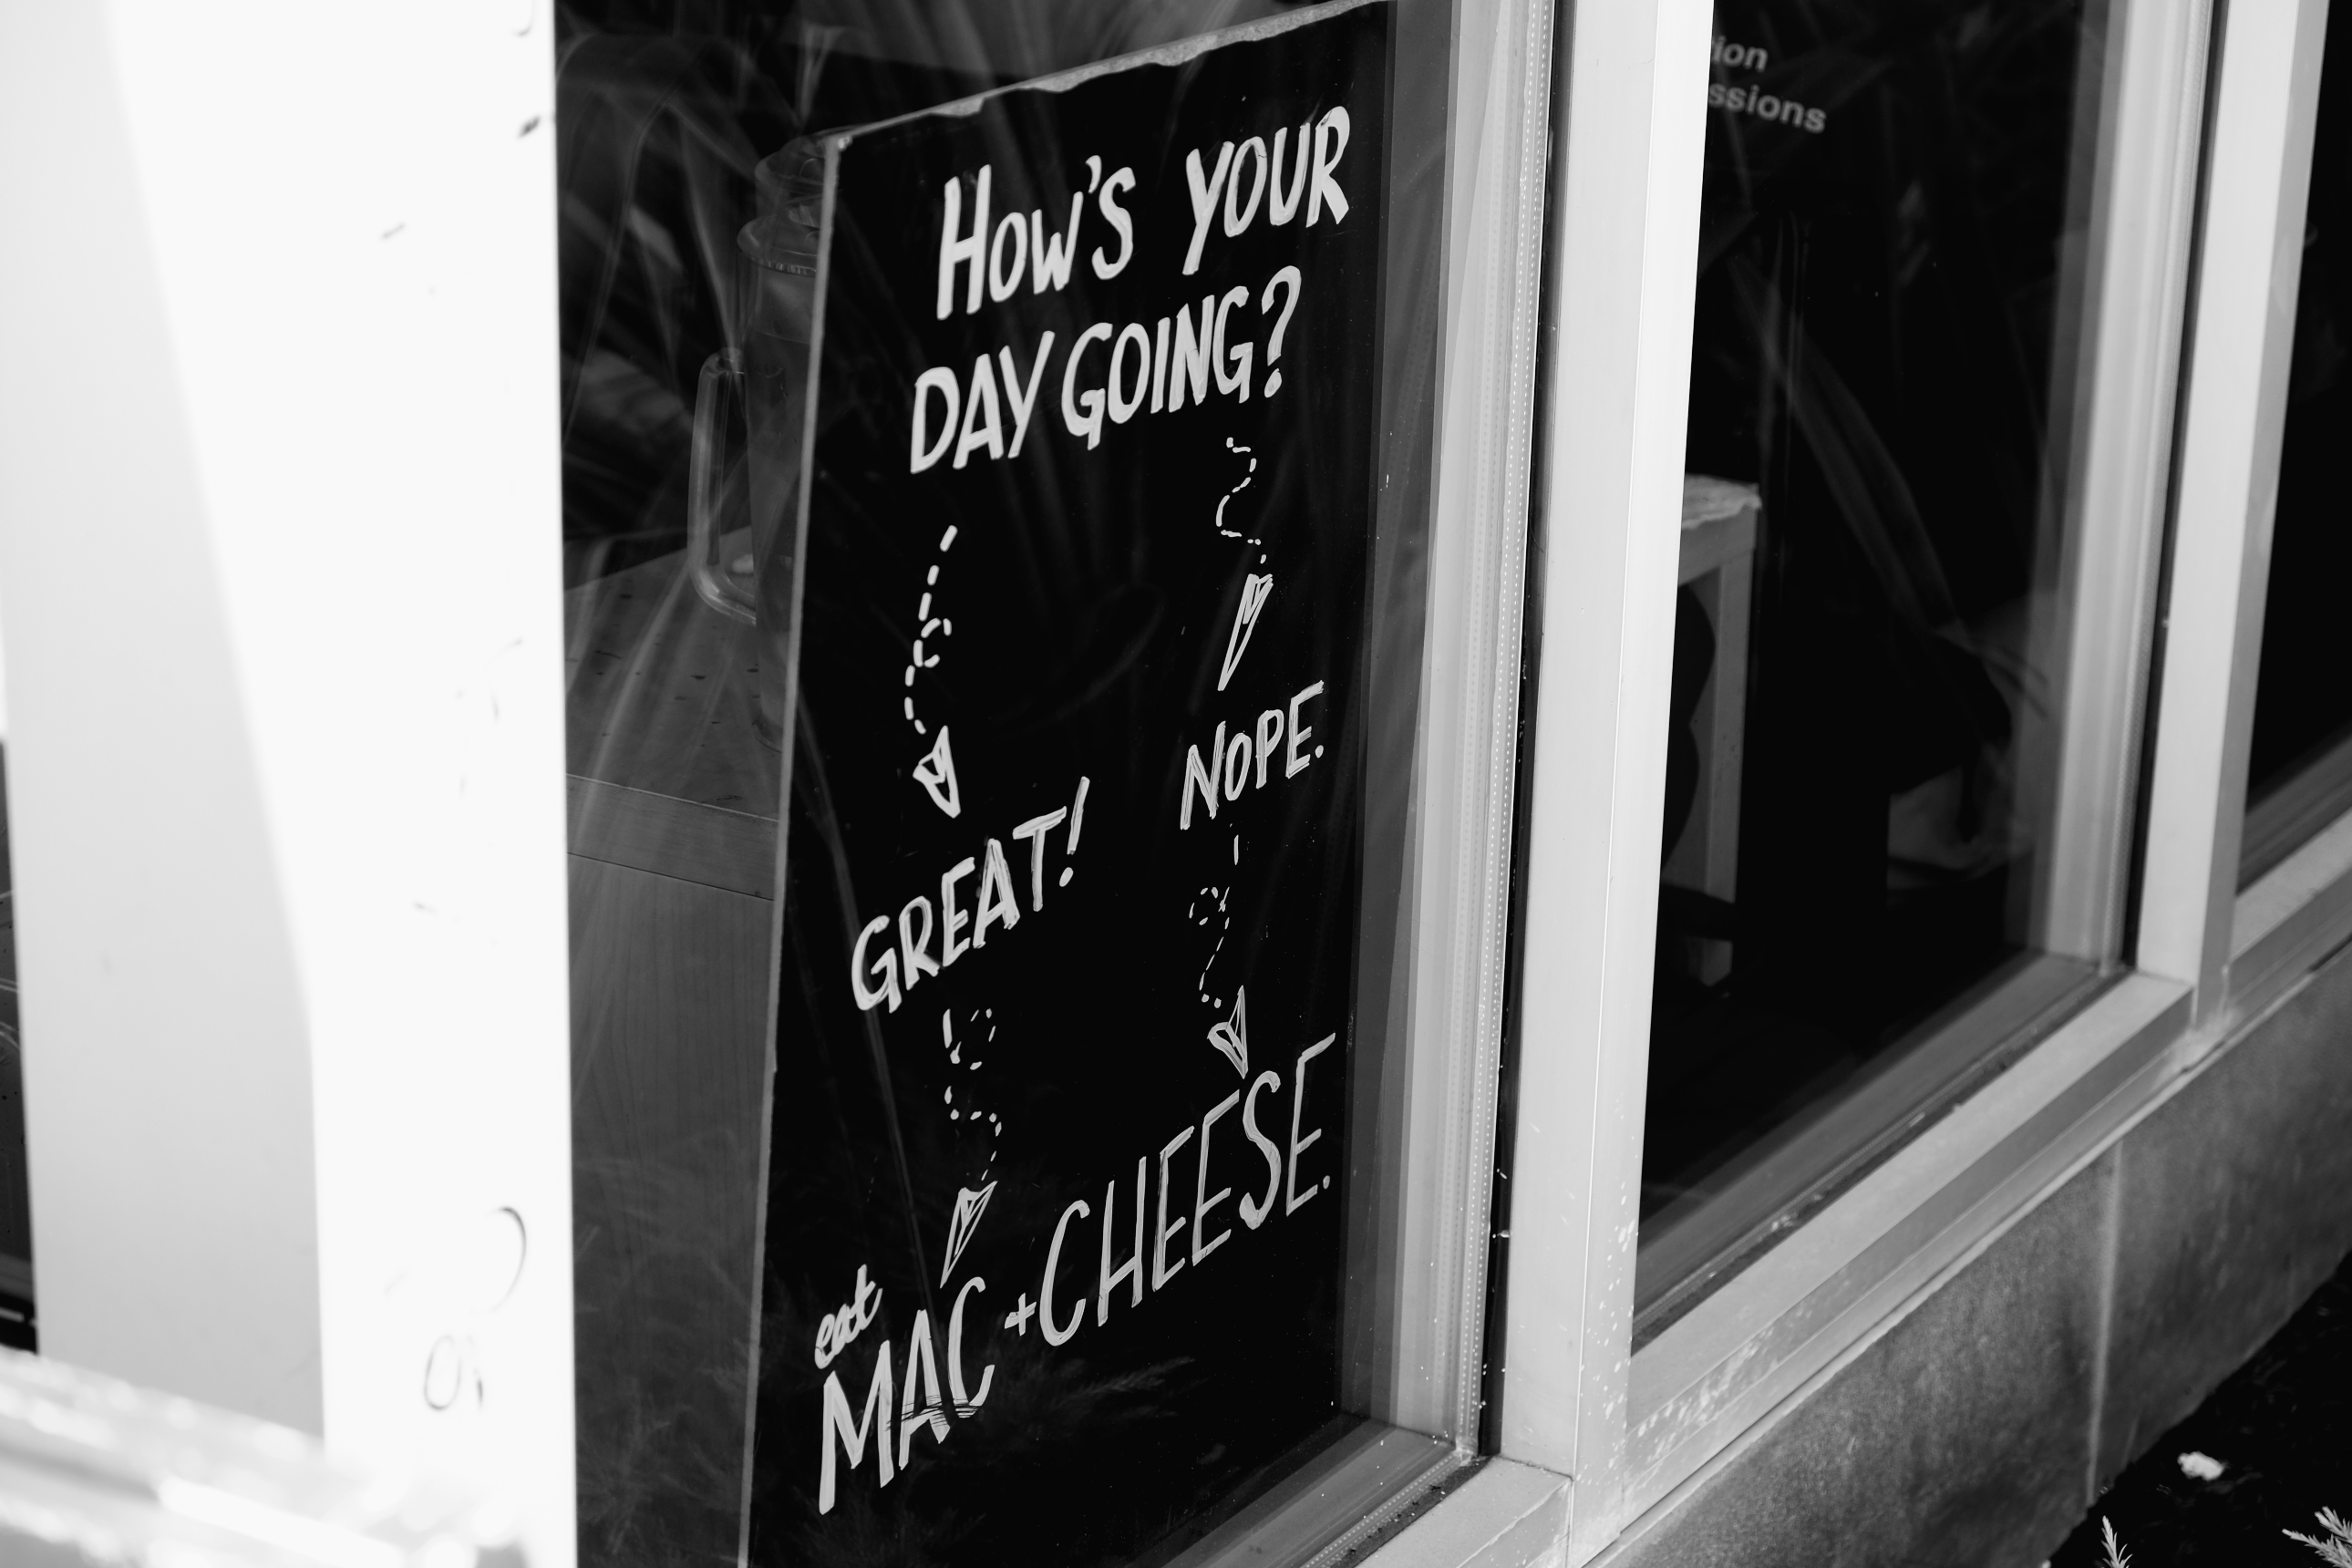 How's YOUR
DAY GOING?
GREAT!
NOPE.
eat
MAC + CHEESE.